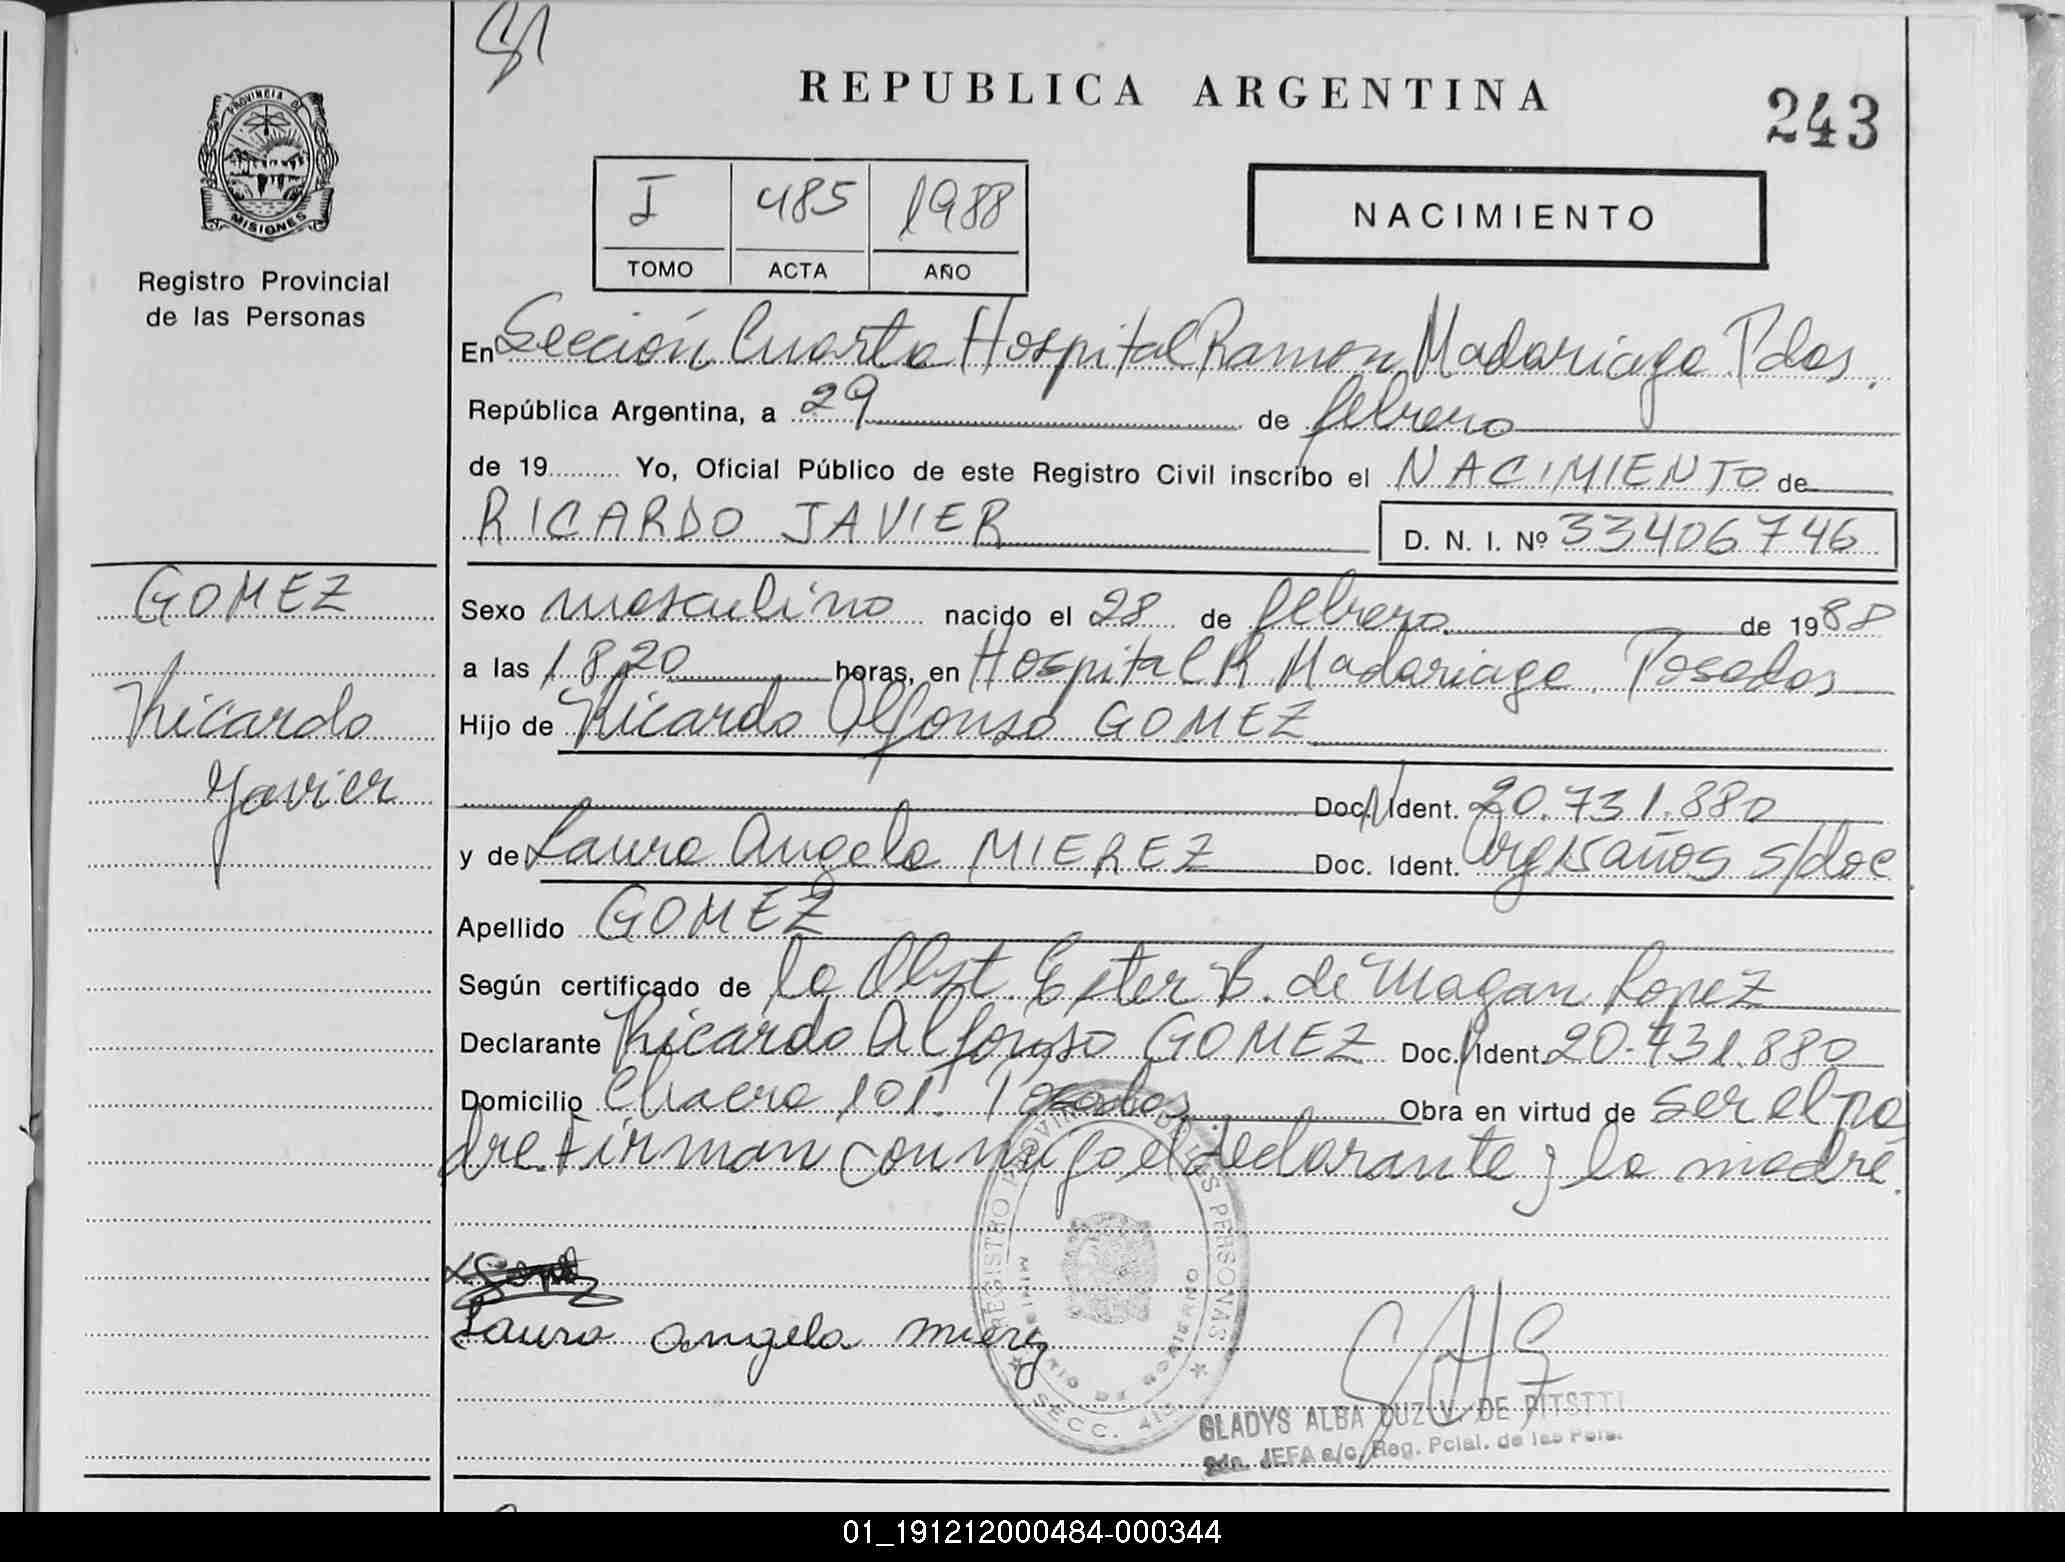 SI
REPUBLICA ARGENTINA
243
PROVINCIA DE
MISIONES
Registro Provincial
de las Personas
I 485 1988
TOMO ACTA AÑO
NACIMIENTO
En Sección Cuarta Hospital Ramon Madariaga Pdas.
República Argentina, a 29 de febrero
de 19 Yo, Oficial Público de este Registro Civil inscribo el NACIMIENTO de
RICARDO JAVIER D. N. I. Nº 33406746
GOMEZ
Ricardo
Javier
Sexo masculino nacido el 28 de febrero de 1988
a las 18,20 horas, en Hospital R. Madariaga Posadas
Hijo de Ricardo Alfonso GOMEZ
Doc. Ident. 20.731.880
y de Laura Angela MIEREZ Doc. Ident. Arg 15 años s/doc
Apellido GOMEZ
Según certificado de la Obst. Ester B. de Magan Lopez
Declarante Ricardo Alfonso GOMEZ Doc. Ident. 20.731.880
Domicilio Chacra 101. Posadas Obra en virtud de ser el pa
dre. Firman conmigo el declarante y la madre.
REGISTRO PROVINCIAL DE LAS PERSONAS
MINISTERIO DE GOBIERNO
SECC. 4ta
Laura angela mierez
GLADYS ALBA LUZ V. DE PITSTTI
JEFA a/c. Reg. Pcial. de las Pers.
01_191212000484-000344